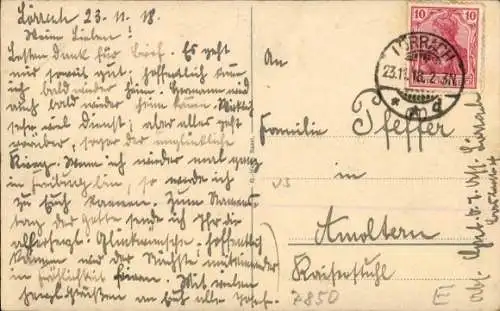 Lörrach 23.11.18.
Meine Lieben!
Besten Dank für Brief. Es geht
mir soweit gut, hoffentlich kann
ich bald wieder heim. Hermann wird
auch bald wieder kommen.
sehr viel Dienst; aber alles geht
vorüber, sogar der unglückliche
Krieg. Wenn ich wieder mal ganz
in Freiburg bin, so werde ich
zu Euch kommen. Zum Namens-
tag der Gotte sende ich Ihr die
allerbest. Glückwünsche. Hoffentlich
können wir der Nächste miteinander
in Fröhlichkeit feiern. Mit vielen
herzl. Grüßen an Euch alle
An
Familie Pfeffer
in
Amoltern
Kaiserstuhl
7850
10 10
LÖRRACH
23.11.18. 2-3N
* d